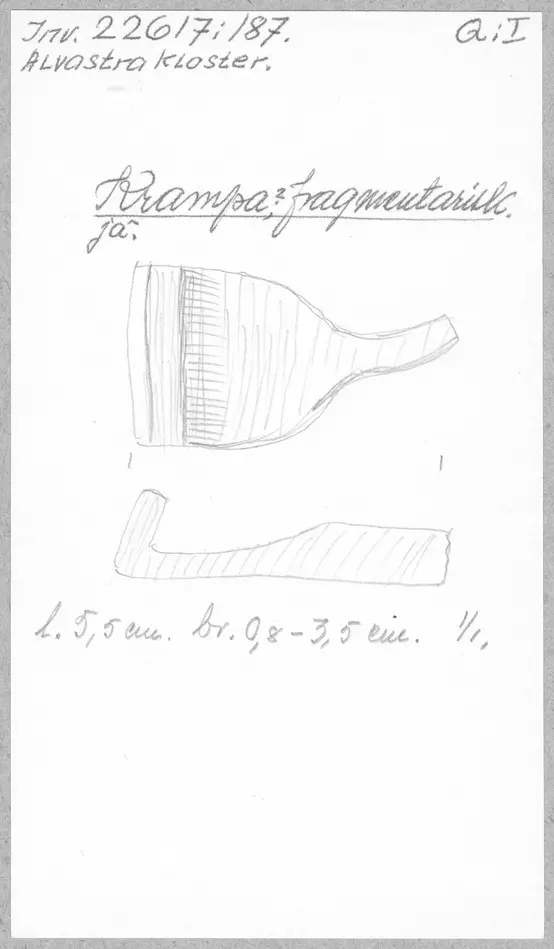 Inv. 22617:187. Q:I
Alvastra kloster.
Krampa,? fragmentarisk.
jä.
l. 5,5 cm. br. 0,8-3,5 cm. 1/1,